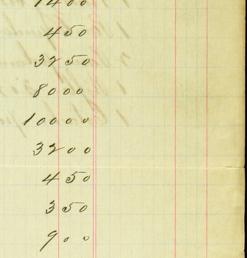 1400
450
3250
8000
10000
3200
450
350
900